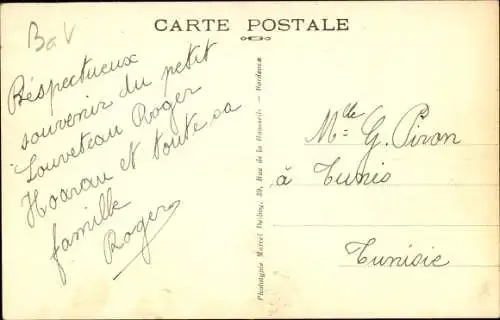 CARTE POSTALE
BaV
Réspectueux
souvenir du petit
Louveteau Roger
Hoarau et toute sa
famille
Roger
Phototypie Marcel Delboy, Rue de la — Bordeaux
Mlle G. Piron
à Tunis
Tunisie